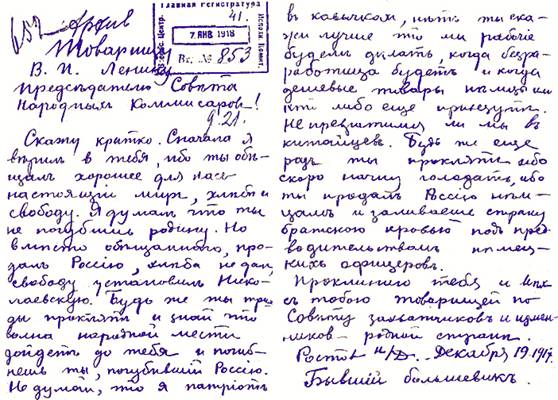 Архив
Главная регистратура
41.
7 ЯНВ 1918
Вх. № 853
Товарищу
В. И. Ленину
Председателю Совѣта
Народныхъ Коммисаровъ!
Скажу кратко. Сначала я
вѣрилъ в тебя, ибо ты обѣ-
щалъ хорошее для насъ
настоящий миръ, хлѣба и
свободу. Я думалъ что ты
не погубишь родину. Но
вмѣсто обѣщаннаго, про-
далъ Россію, хлѣба не далъ,
свободу установилъ Нико-
лаевскую. Будь же ты три-
ды проклятъ и знай что
волна народной мести
дойдетъ до тебя и погиб-
нешь ты, погубившій Россію.
Не думай, что я патріотъ
въ кавычкахъ, нѣтъ ты ска-
жи лучше что мы рабочіе
будемъ дѣлать, когда безра-
работица будетъ и когда
дешевые товары нѣмцы или
кто либо еще привезутъ.
Не превратимся ли мы въ
китайцевъ. Будь же еще
разъ ты проклятъ ибо
скоро начну голодать, ибо
ты продалъ Россію нѣм-
цамъ и заливаешь страну
братскою кровью подъ пред-
водительствомъ нѣмец-
кихъ офицеровъ.
Проклинаю тебя и всѣхъ
съ тобою товарищей по
Совѣту захватчиковъ и измѣн-
никовъ родной страны.
Ростовъ н/Д. Декабря 19. 1917.
Бывшій большевикъ.